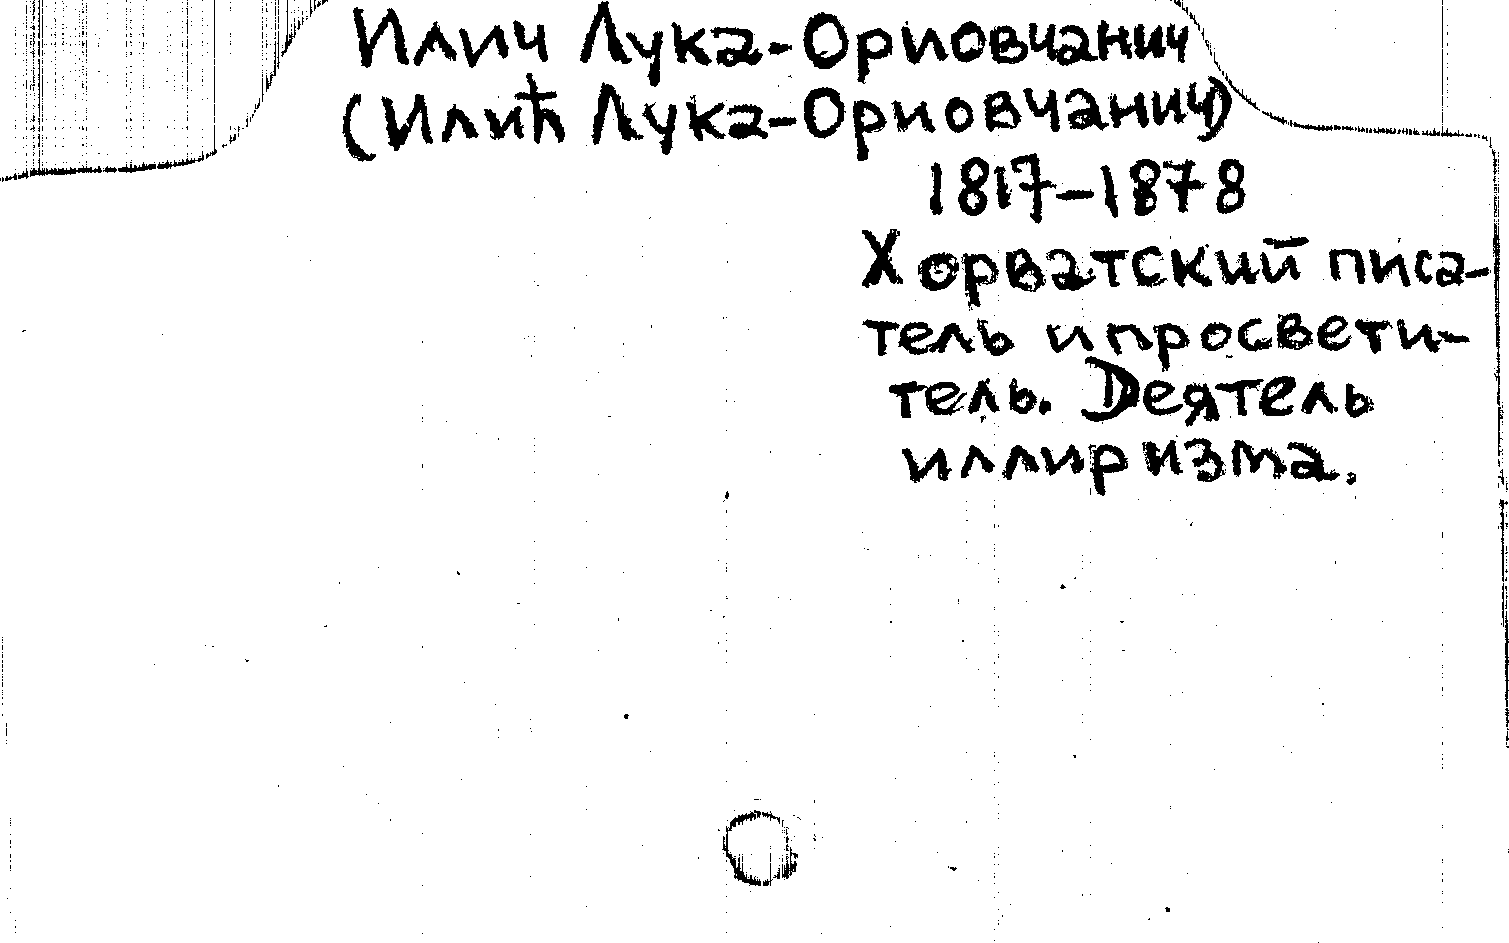 Илич Лука-Ориовчанич
(Илић Лука-Ориовчанич)
1817-1878
Хорватский писа-
тель и просвети-
тель. Деятель
иллиризма.